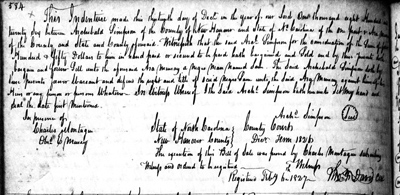 384
This Indenture made this eighteenth day of Dect in the year of our Lord One thousand eight Hundred
twenty six between Archibald Simpson of the County of New Hanover and State of No Carolina of the one part &
of the County and State and County aforesaid Witnesseth that the said Archd Simpson for the consideration of the Sum of
Hundred & fifty Dollars to him in hand paid or secured to be paid hath bargained and Sold and by these presents do
bargain and Sell unto the aforesaid a Negro Man Named Sam The said Archibald
have Warrant forever Warrant and defend the right and title of said Negro Sam unto the said against
Heirs or any person or persons Whatever In testimony Whereof I the said Archd Simpson hath hereunto set my hand and
seal the date first mentioned
Archd Simpson Seal
In presence of
Charles Montague
State of North Carolina County Court
New Hanover County Decr Term 1826
The execution of this Bill of Sale was proved by Charles Montague subscribing
Witness and ordered to be registered
Registered Feby 6 1827